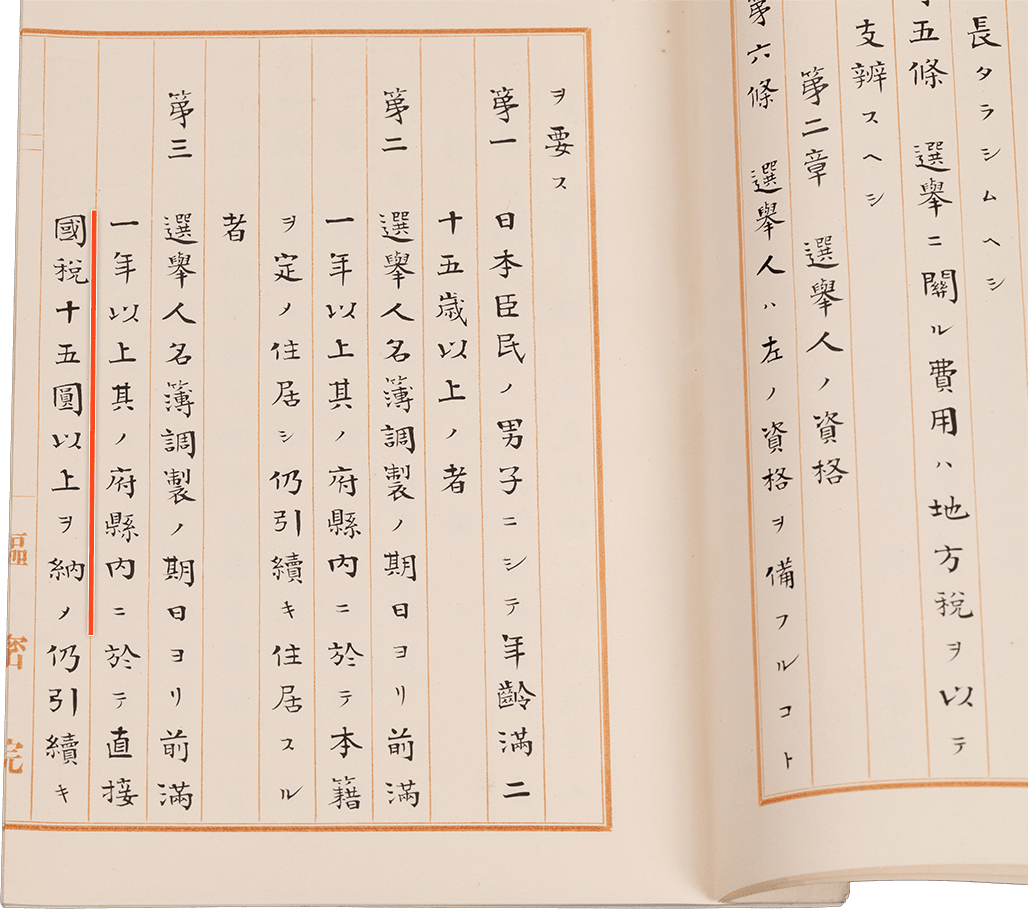 長タラシムヘシ
五條 選舉ニ關ル費用ハ地方税ヲ以テ
支辨スヘシ
第二章 選舉人ノ資格
第六條 選舉人ハ左ノ資格ヲ備フルコト
ヲ要ス
第一 日本臣民ノ男子ニシテ年齡滿二
十五歳以上ノ者
第二 選舉人名簿調製ノ期日ヨリ前滿
一年以上其ノ府縣内ニ於テ本籍
ヲ定メ住居シ仍引續キ住居スル
者
第三 選舉人名簿調製ノ期日ヨリ前滿
一年以上其ノ府縣内ニ於テ直接
國税十五圓以上ヲ納メ仍引續キ
樞密院